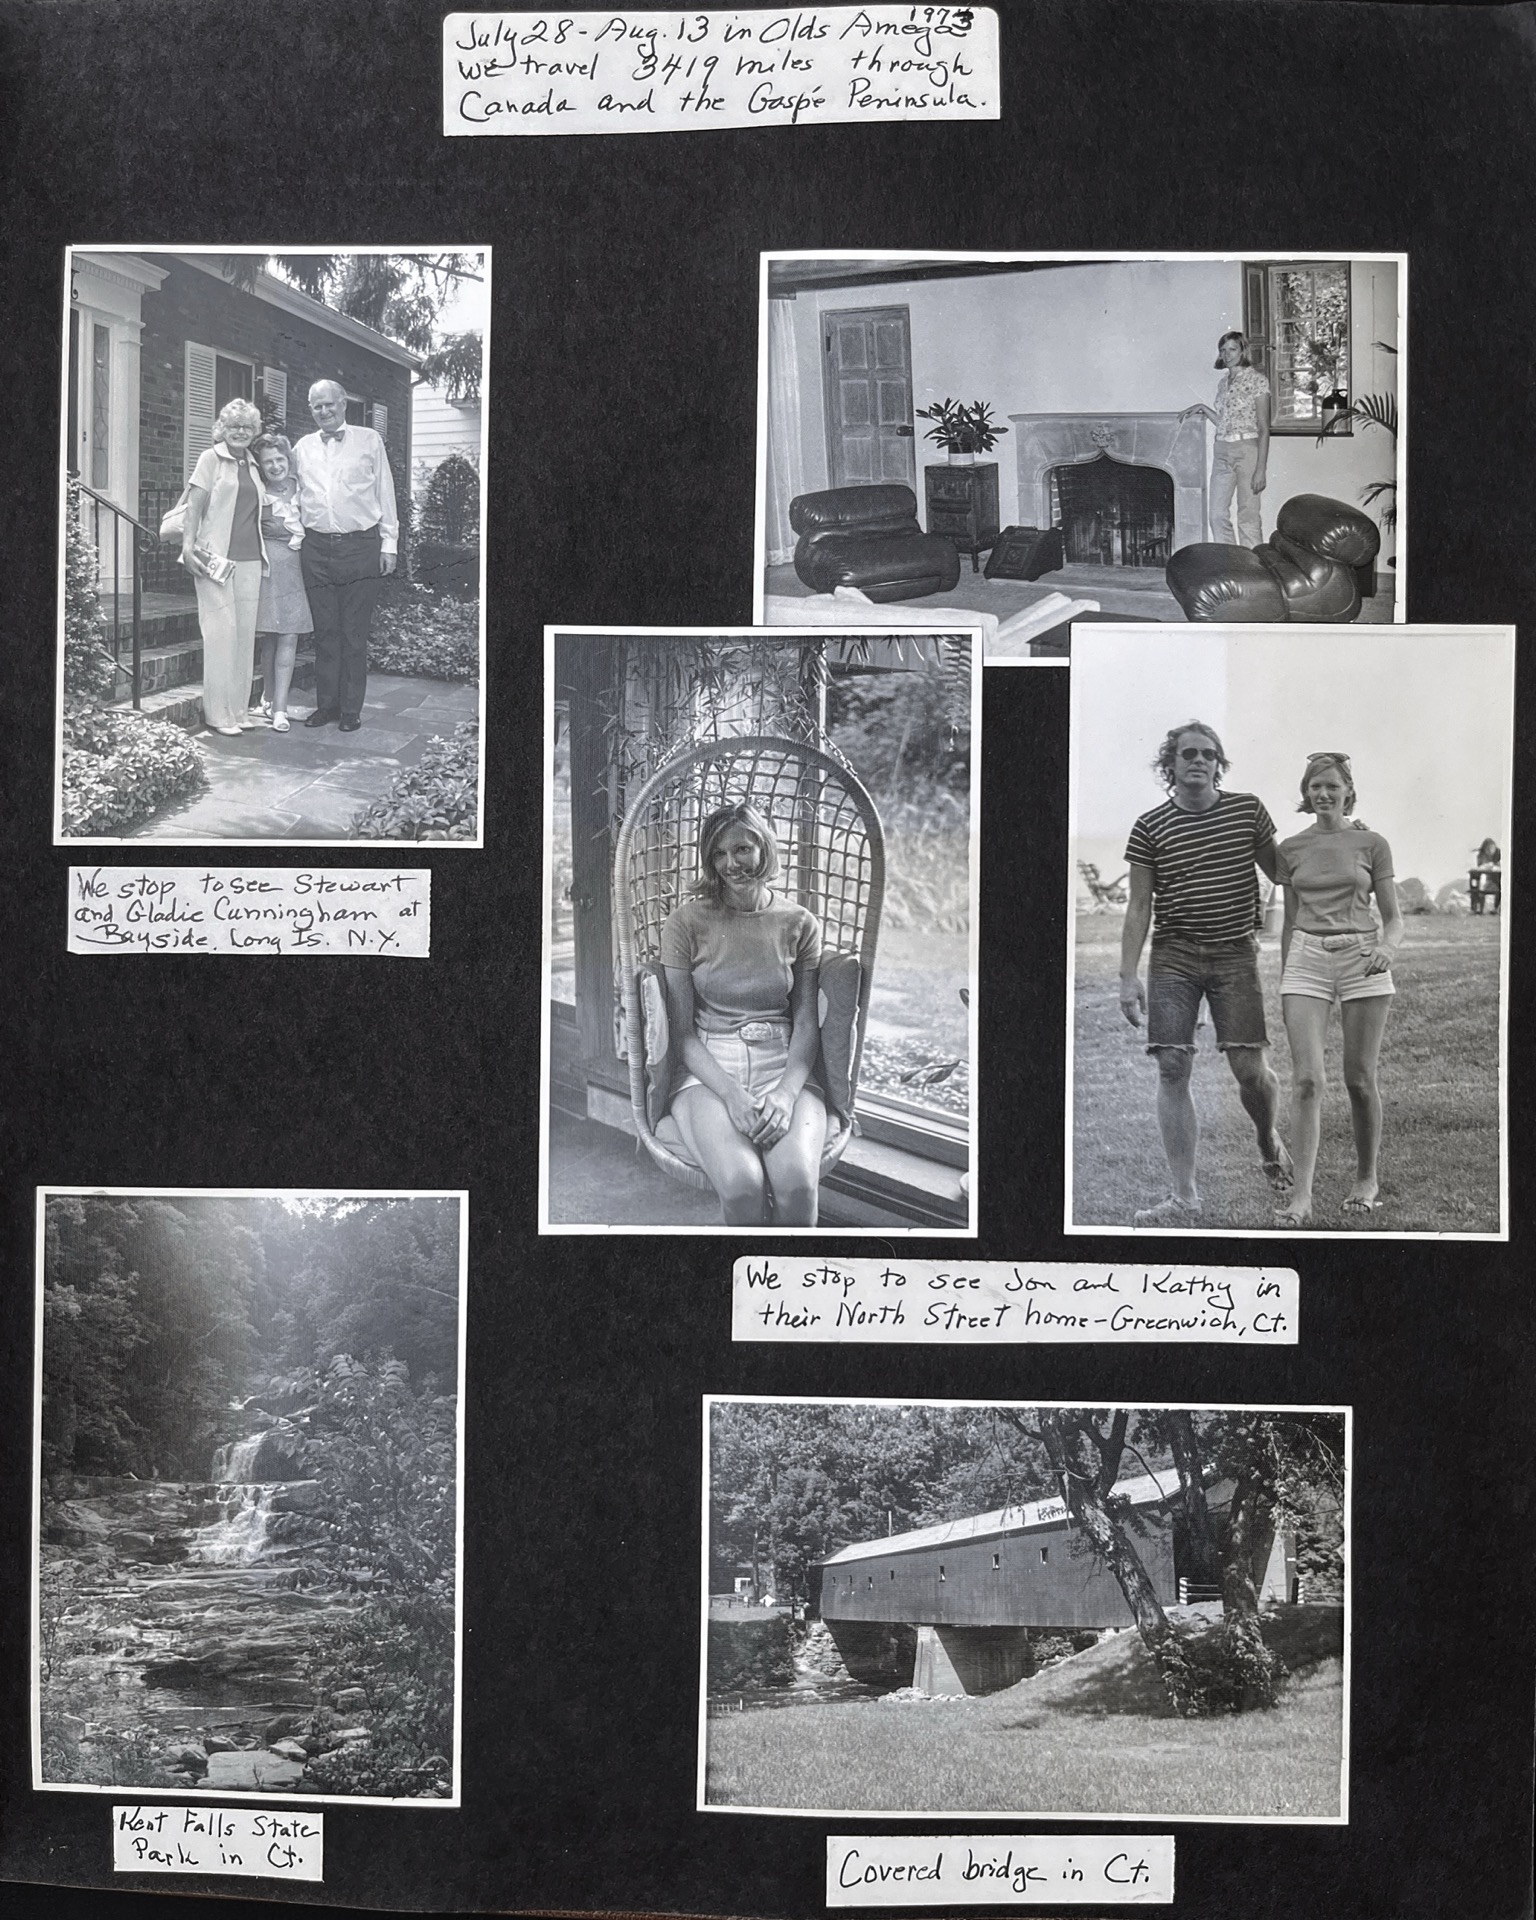 1973
July 28 - Aug. 13 in Olds Amega
we travel 3419 miles through
Canada and the Gaspé Peninsula.
We stop to see Stewart
and Gladie Cunningham at
Bayside, Long Is. N.Y.
We stop to see Jon and Kathy in
their North Street home - Greenwich, Ct.
Kent Falls State
Park in Ct.
Covered bridge in Ct.